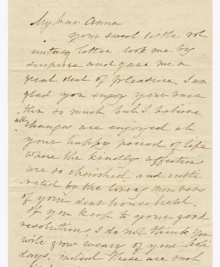 My dear Anna
your sweet little vol
untary letter took me by
surprise and gave me a
great deal of pleasure, I am
glad you enjoy your
so much but I
all changes are enjoyed at
your happy period of life
where the kindly affection
are so cherished, and culti
vated by the loving members
of your dear household.
If you keep to your good
resolutions, I do not think you
will grow weary of your
days, without these are such